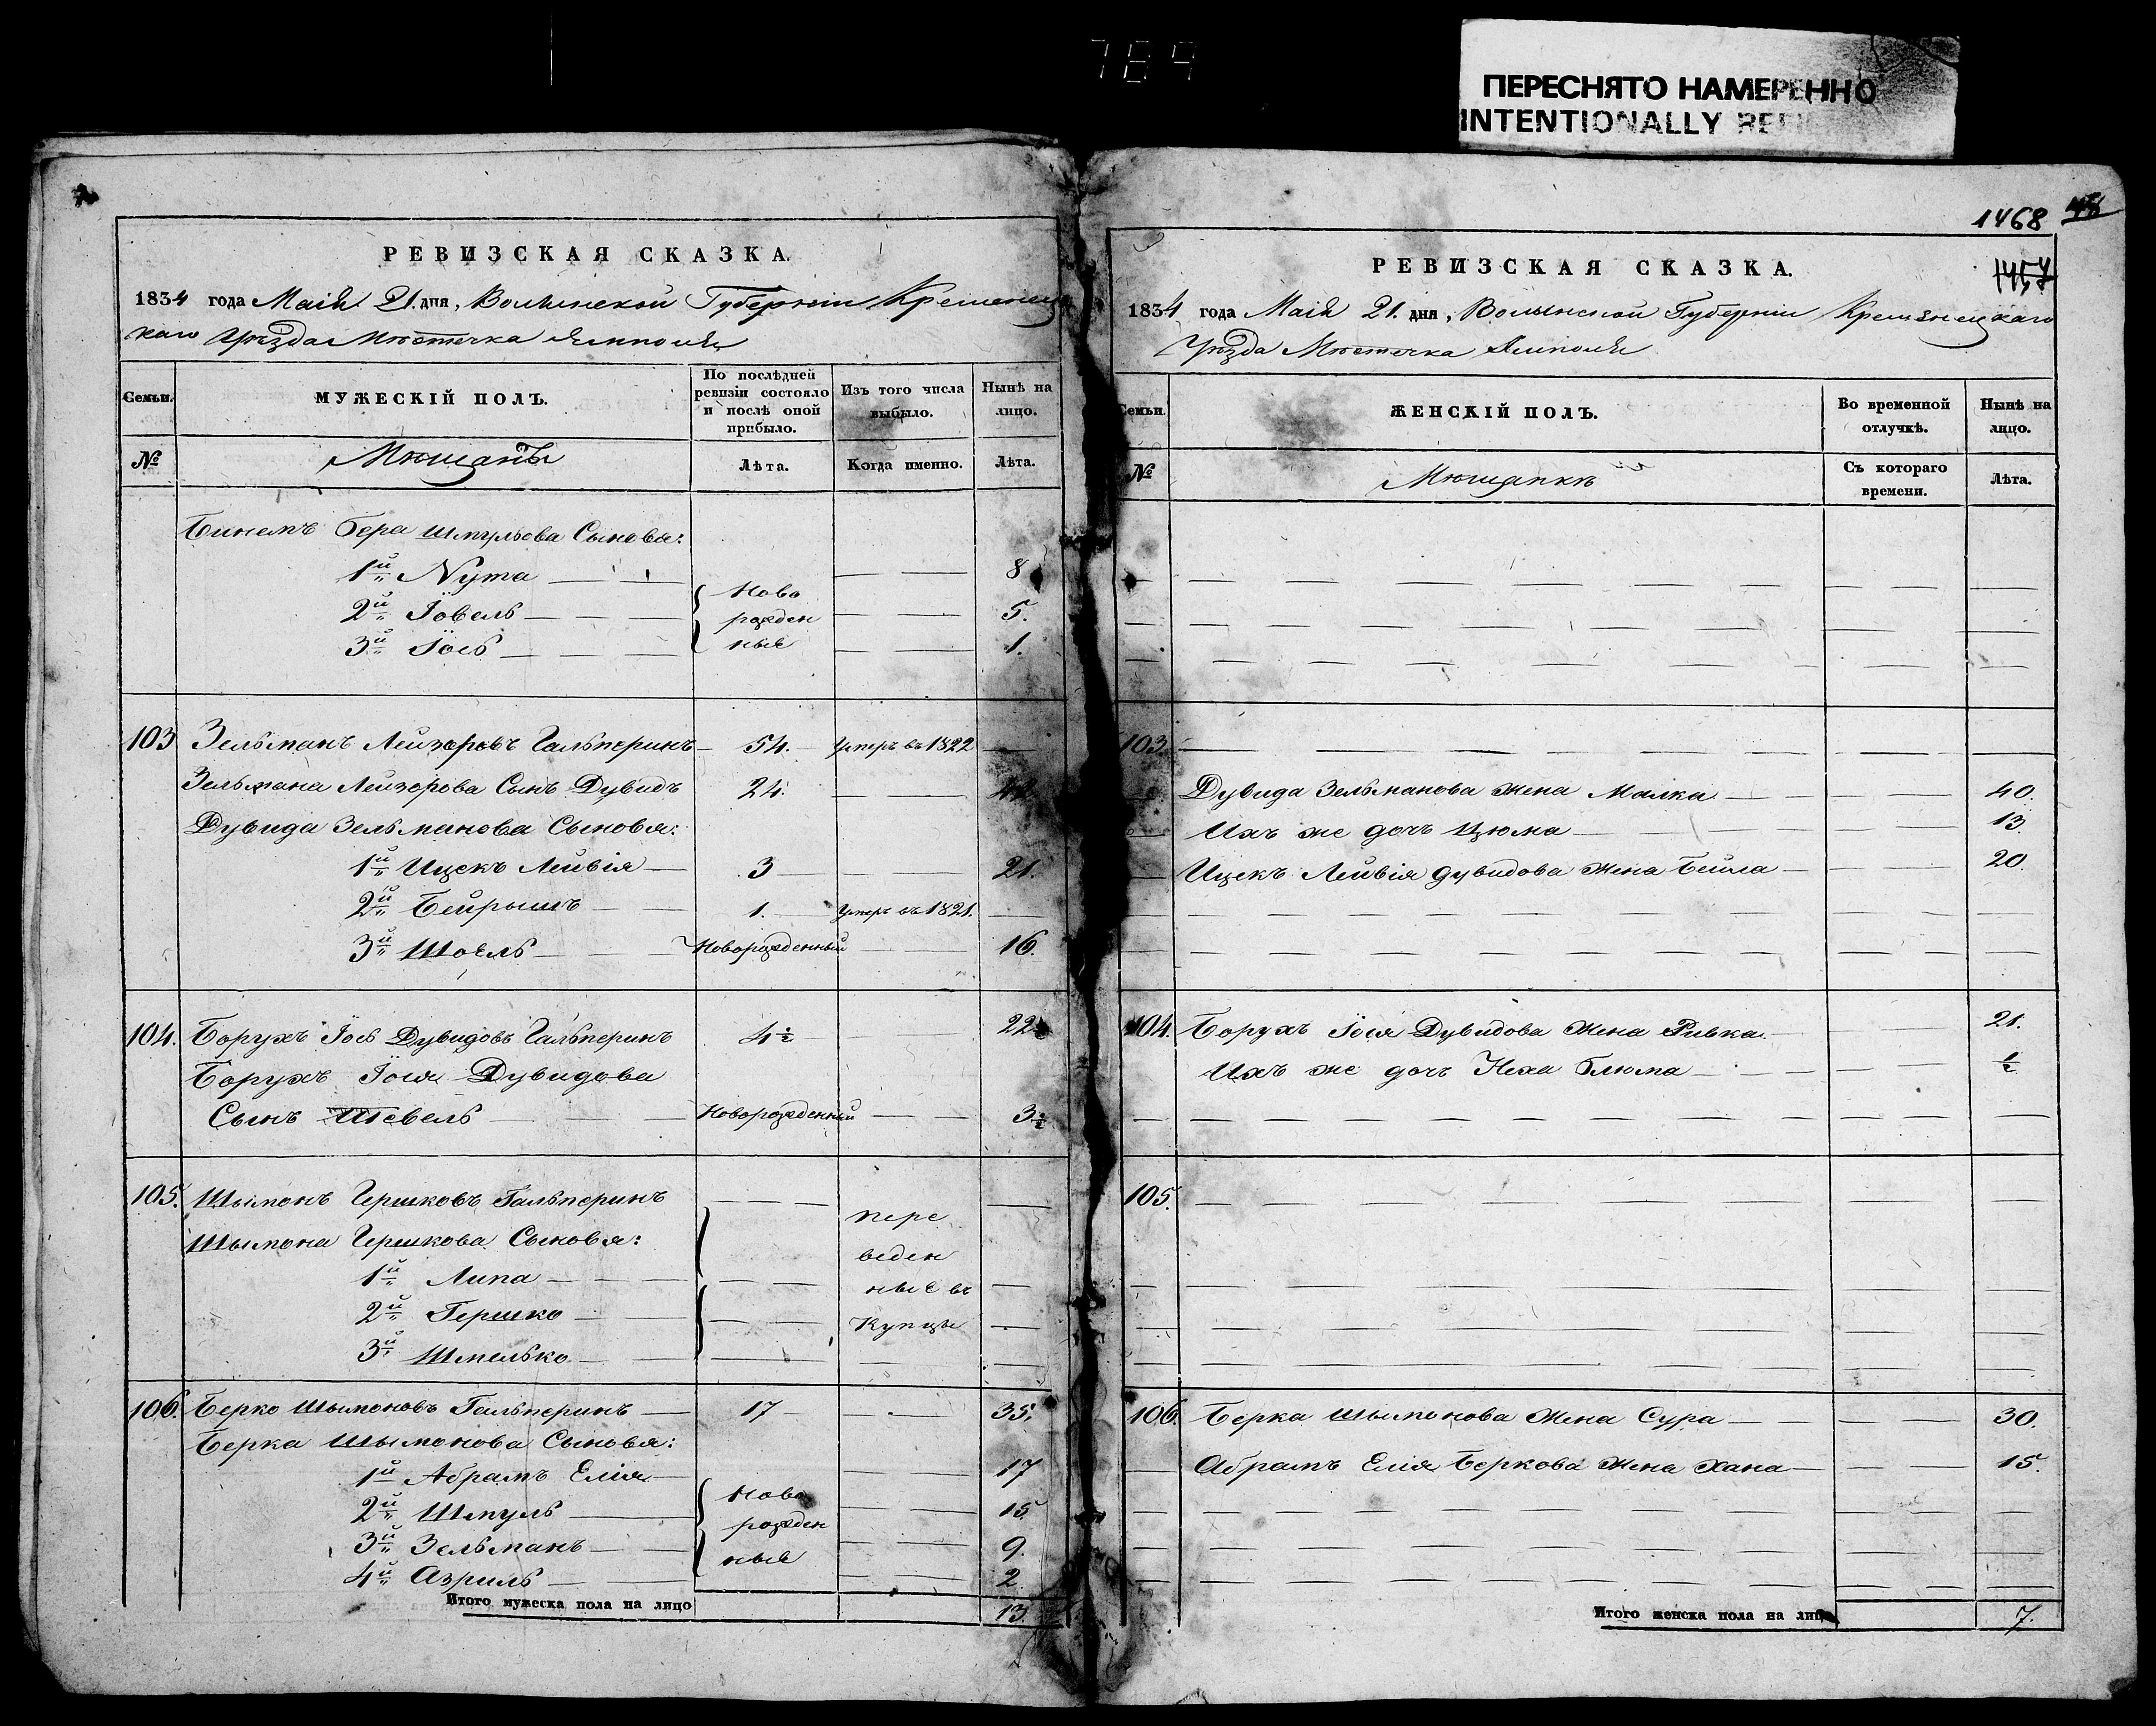 789
ПЕРЕСНЯТО НАМЕРЕННО
INTENTIONALLY
РЕВИЗСКАЯ СКАЗКА.
1834 года Маія 21. дня, Волынской Губерніи Кременец
каго Уѣзда Мѣстечка Ямполя
Семьи.
МУЖЕСКІЙ ПОЛЪ.
По послѣдней ревизіи состояло и послѣ оной прибыло.
Изъ того числа выбыло.
Нынѣ на лицо.
№
Мѣщанъ
Лѣта.
Когда именно.
Лѣта.
Бинемъ Бера Шмульова Сыновья:
1й Нута 8
2й Іовель 5.
3й Іось 1.
Ново
рожден
ные
103 Зельманъ Лейзоровъ Гальперинъ 54. Умеръ въ 1822
Зельмана Лейзорова Сынъ Дувидъ 24.
Дувида Зельманова Сыновья:
1й Ицекъ Лейвія 3 21.
2й Бейрышъ 1. Умеръ въ 1821.
3й Шоель Новорожденный 16.
104. Борухъ Іось Дувидовъ Гальперинъ 4½ 22½
Борухъ Іося Дувидова
Сынъ Шевель Новорожденный 3½
105. Шымонъ Гершковъ Гальперинъ
Шымона Гершкова Сыновья:
1й Липа
2й Гершко
3й Шмелько
пере
веден
ные въ
Купцы
106. Берко Шымоновъ Гальперинъ 17 35.
Берка Шымонова Сыновья:
1й Абрамъ Елія 17
2й Шмуль 15
3й Зельманъ 9.
4й Азриль 2.
Ново
рожден
ные
Итого мужеска пола на лицо 13.
1468
1457
РЕВИЗСКАЯ СКАЗКА.
1834 года Маія 21. дня, Волынской Губерніи Кременецкаго
Уѣзда Мѣстечка Ямполя
Семьи.
ЖЕНСКІЙ ПОЛЪ.
Во временной отлучкѣ.
Нынѣ на лицо.
№
Мѣщанкѣ
Съ котораго времени.
Лѣта.
103.
Дувида Зельманова жена Малка 40.
Ихъ же дочь Цюма 13.
Ицекъ Лейвія Дувидова жена Бейла 20.
104. Борухъ Іося Дувидова жена Ривка 21.
Ихъ же дочь Неха Блюма ½
105.
106. Берка Шымонова жена Сура 30.
Абрамъ Елія Беркова жена Хана 15.
Итого женска пола на лицо 7.